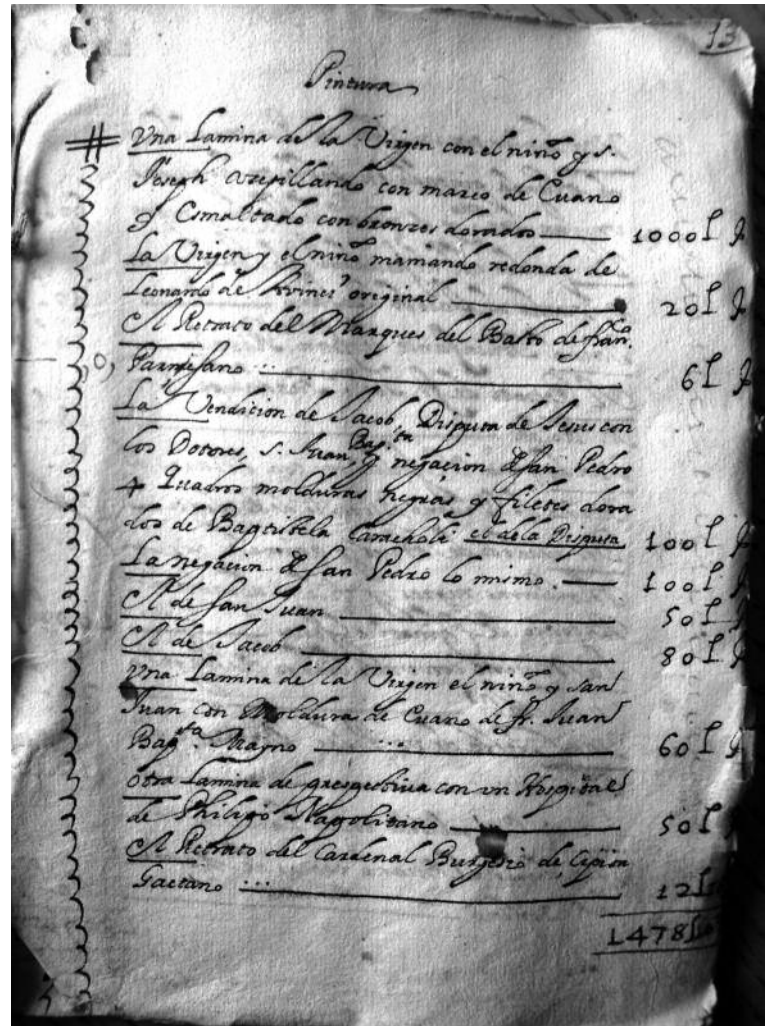 13
Pintura
Vna Lamina de la Virgen con el niño y s.
Joseph acepillando con marco de Euano
y Esmaltado con bronzes dorados 1000 L
La Virgen y el niño mamando redonda de
Leonardo de Avinci original 20 L
El Retrato del Marques del Basto de fran.co
Parmesano 6 L
La Vendicion de Jacob, Disputa de Jesus con
los Dotores, s. Juan Bap.ta y negacion de san Pedro
4 Quadros molduras negras y filetes dora
dos de Baptistela Caracholi el de la Disputa 100 L
La negacion de san Pedro lo mismo. 100 L
El de san Juan 50 L
El de Jacob 80 L
Vna Lamina de la Virgen el niño y san
Juan con Moldura de Euano de fr. Juan
Bap.ta Magno 60 L
Otra Lamina de prespectiva con vn Hospital
de Philipo Napolitano 50 L
El Retrato del Cardenal Burgesio de Cipion
Gaetano 12
1478